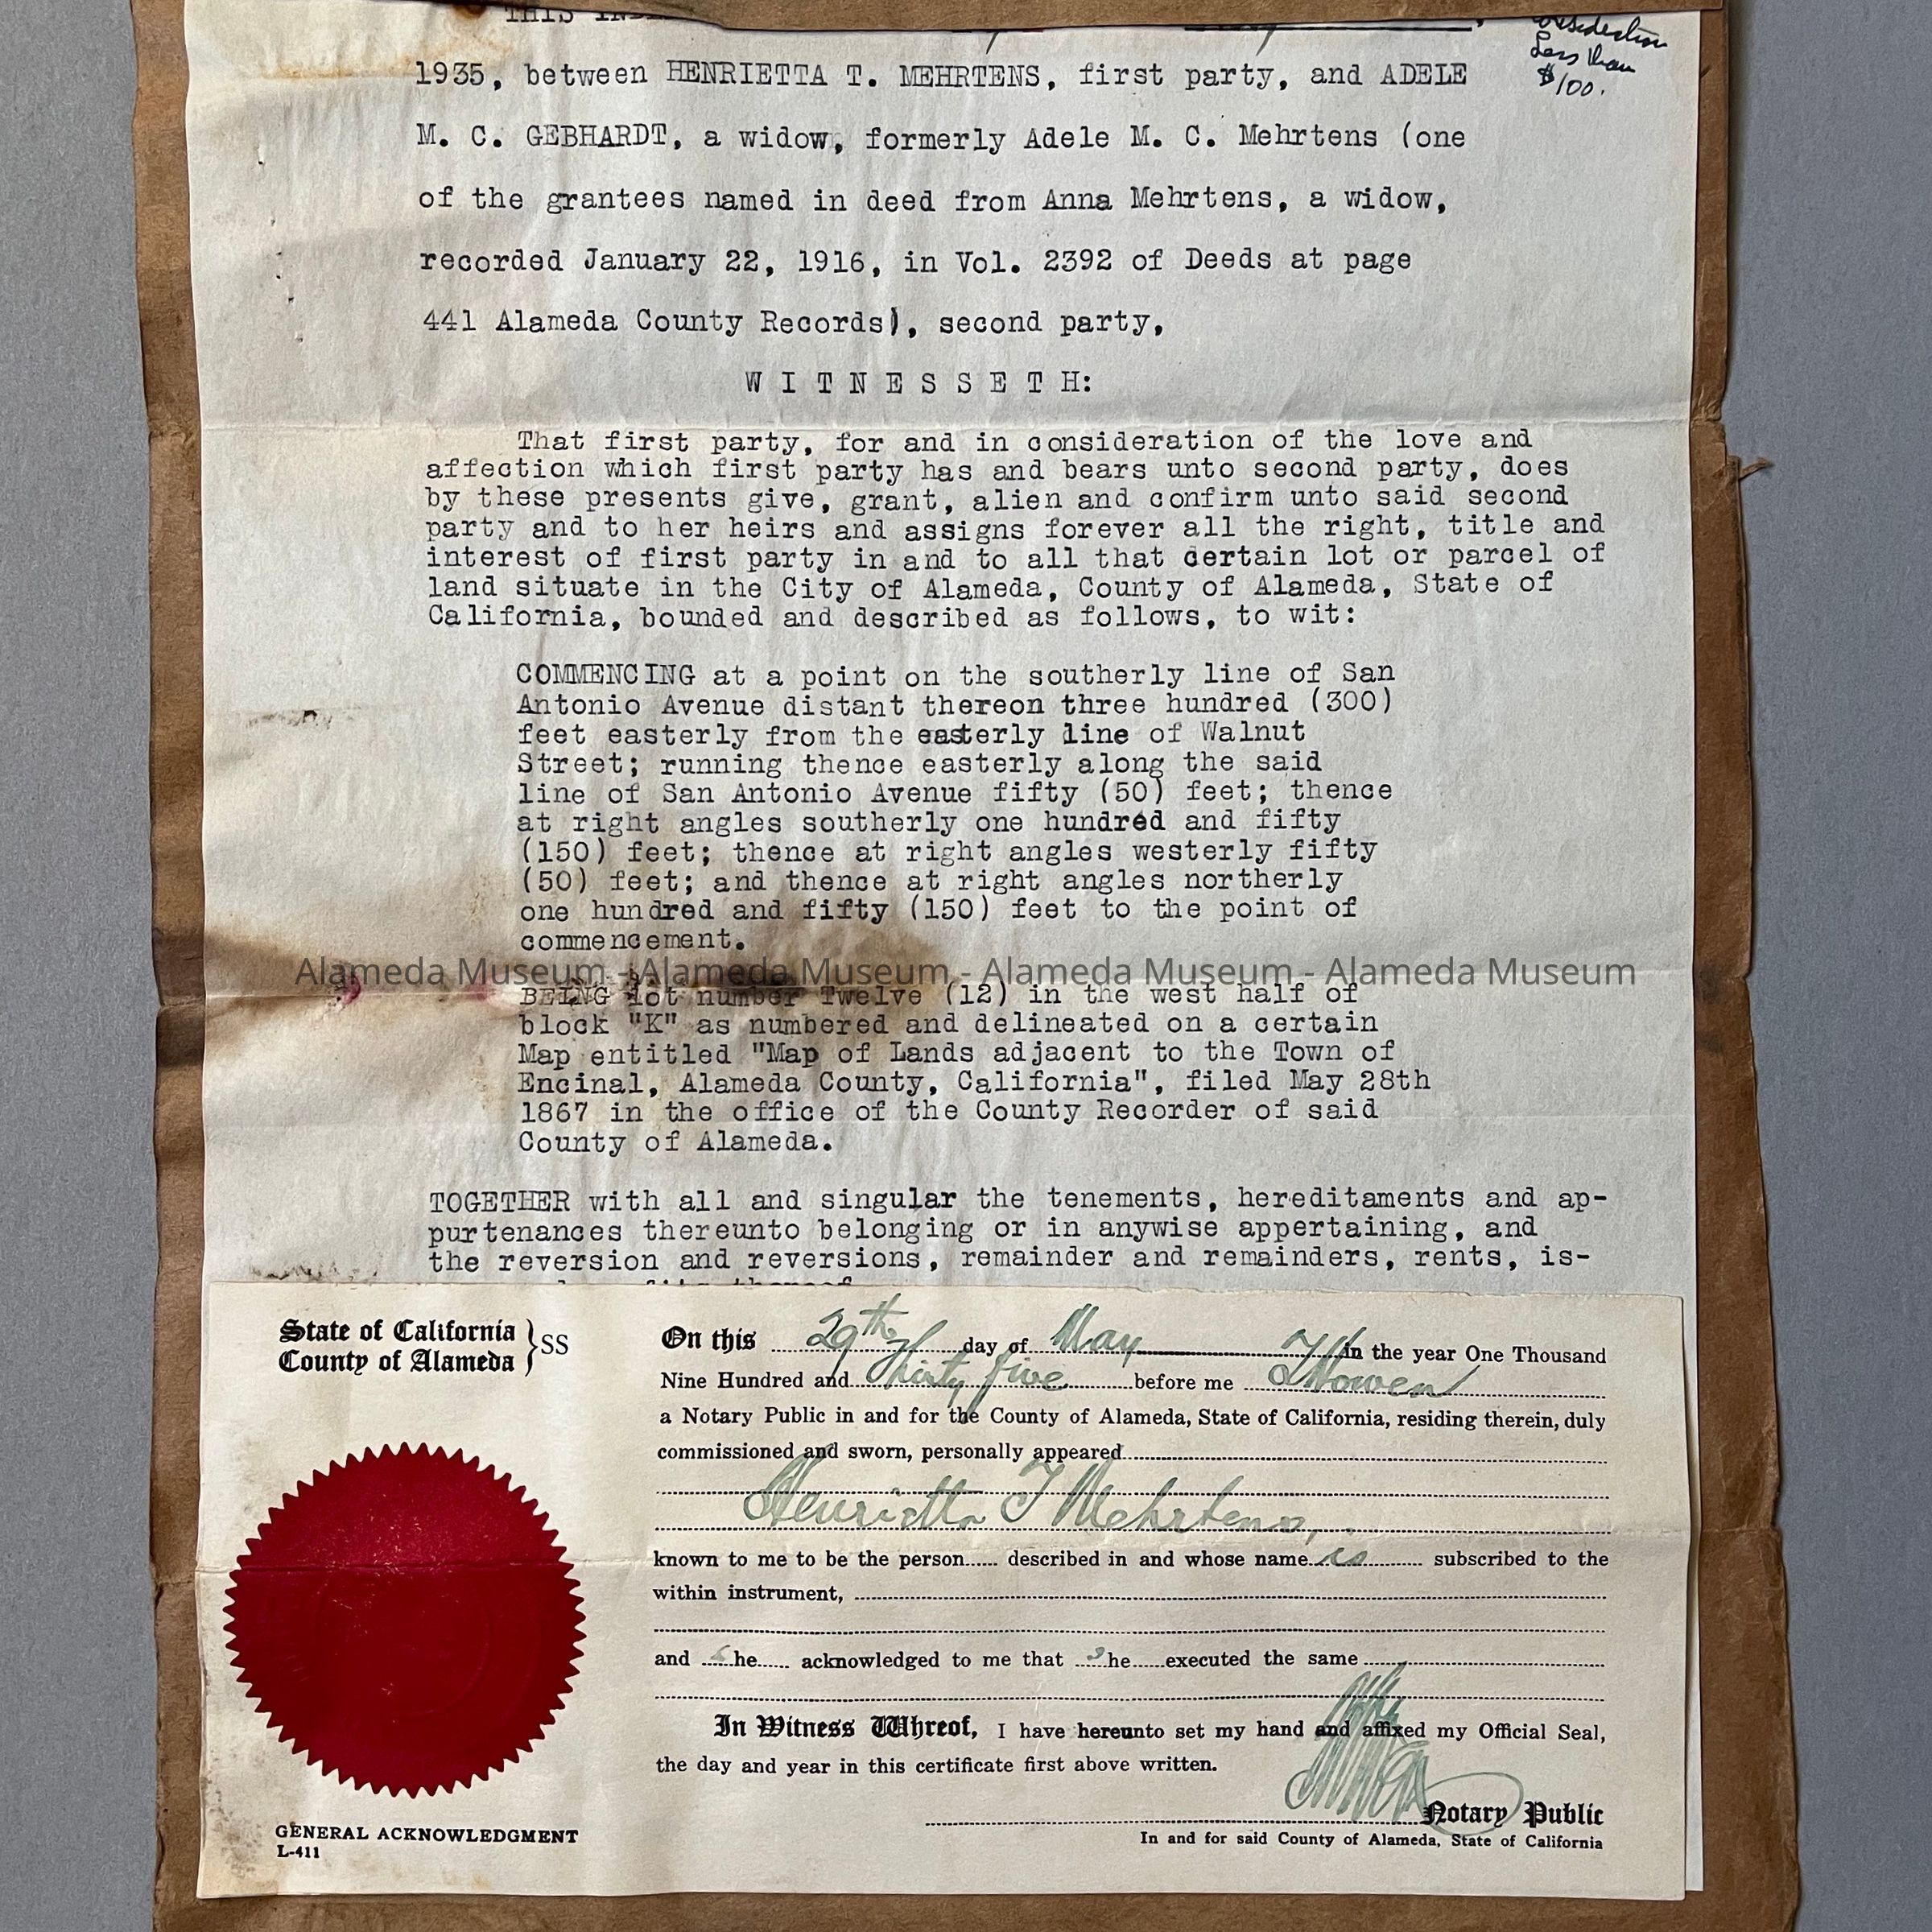 THIS
Consideration
Less than
$100.
1935, between HENRIETTA T. MEHRTENS, first party, and ADELE
M. C. GEBHARDT, a widow, formerly Adele M. C. Mehrtens (one
of the grantees named in deed from Anna Mehrtens, a widow,
recorded January 22, 1916, in Vol. 2392 of Deeds at page
441 Alameda County Records), second party,
W I T N E S S E T H:
That first party, for and in consideration of the love and
affection which first party has and bears unto second party, does
by these presents give, grant, alien and confirm unto said second
party and to her heirs and assigns forever all the right, title and
interest of first party in and to all that certain lot or parcel of
land situate in the City of Alameda, County of Alameda, State of
California, bounded and described as follows, to wit:
COMMENCING at a point on the southerly line of San
Antonio Avenue distant thereon three hundred (300)
feet easterly from the easterly line of Walnut
Street; running thence easterly along the said
line of San Antonio Avenue fifty (50) feet; thence
at right angles southerly one hundred and fifty
(150) feet; thence at right angles westerly fifty
(50) feet; and thence at right angles northerly
one hundred and fifty (150) feet to the point of
commencement.
Alameda Museum - Alameda Museum - Alameda Museum - Alameda Museum
BEING lot number Twelve (12) in the west half of
block "K" as numbered and delineated on a certain
Map entitled "Map of Lands adjacent to the Town of
Encinal, Alameda County, California", filed May 28th
1867 in the office of the County Recorder of said
County of Alameda.
TOGETHER with all and singular the tenements, hereditaments and ap-
purtenances thereunto belonging or in anywise appertaining, and
the reversion and reversions, remainder and remainders, rents, is-
thereof
State of California
County of Alameda } SS
On this 29th day of May in the year One Thousand
Nine Hundred and Thirty five before me
a Notary Public in and for the County of Alameda, State of California, residing therein, duly
commissioned and sworn, personally appeared
Henrietta T Mehrtens,
known to me to be the person described in and whose name is subscribed to the
within instrument,
and she acknowledged to me that she executed the same
In Witness Whreof, I have hereunto set my hand and affixed my Official Seal,
the day and year in this certificate first above written.
Notary Public
In and for said County of Alameda, State of California
GENERAL ACKNOWLEDGMENT
L-411